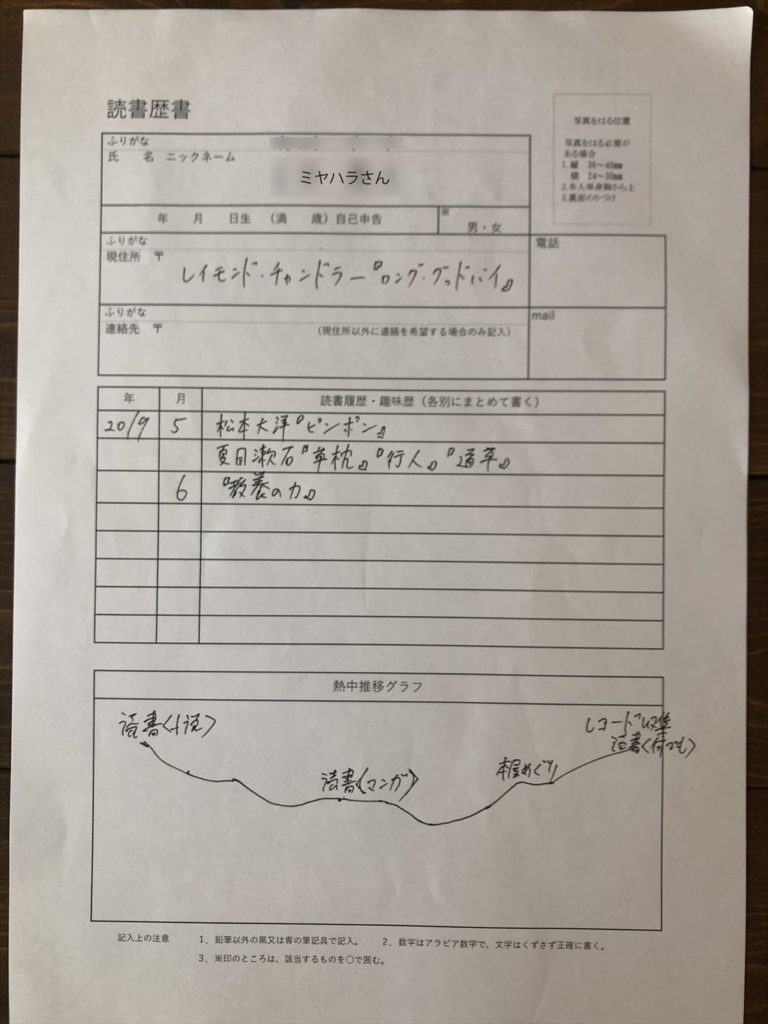 読書歴書
写真をはる位置
写真をはる必要が
ある場合
1.縦 36〜40mm
横 24〜30mm
2.本人単身胸から上
3.裏面のりづけ
ふりがな
氏 名 ニックネーム
ミヤハラさん
年 月 日生 (満 歳)自己申告
※
男・女
ふりがな
現住所 〒
レイモンド・チャンドラー『ロング・グッドバイ』
電話
ふりがな
連絡先 〒 (現住所以外に連絡を希望する場合のみ記入)
mail
年 月 読書履歴・趣味歴(各別にまとめて書く)
2019 5 松本大洋『ピンポン』
夏目漱石『草枕』『行人』『道草』
6 『教養の力』
熱中推移グラフ
読書(小説)
読書(マンガ)
本屋めぐり
レコード収集
読書(何でも)
記入上の注意 1.鉛筆以外の黒又は青の筆記具で記入。 2.数字はアラビア数字で、文字はくずさず正確に書く。
3.※印のところは、該当するものを○で囲む。